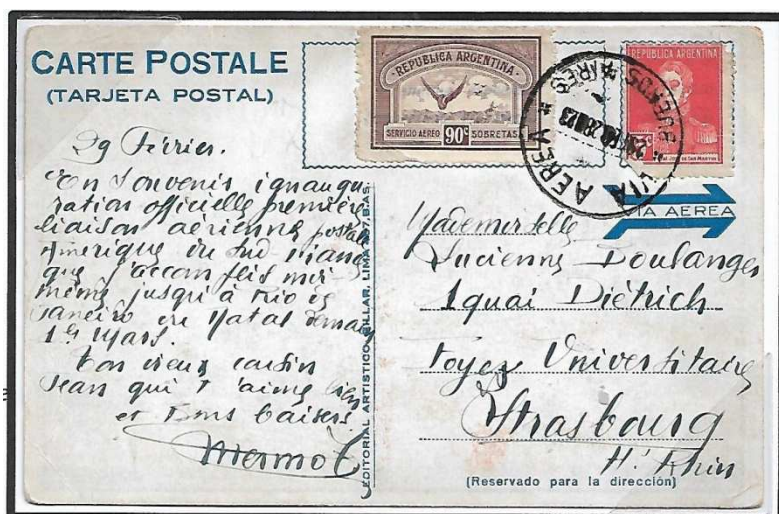 CARTE POSTALE
(TARJETA POSTAL)
REPUBLICA ARGENTINA
SERVICIO AEREO 90c SOBRETASA
REPUBLICA ARGENTINA
VIA AEREA
BUENOS AIRES
VIA AEREA
29 Février.
En souvenir ignaugu
ration officielle première
liaison aérienne postale
Amérique du Sud
que j'accomplis moi
même jusqu'à Rio de
Janeiro ou Natal demain
1er Mars.
Ton vieux cousin
Jean qui t'aime bien
et bons baisers.
Mermoz
EDITORIAL ARTISTICO LIMA B. AS.
Mademoiselle
Lucienne Boulanger
1 quai Diétrich
Foyer Universitaire
Strasbourg
Ht Rhin
(Reservado para la dirección)